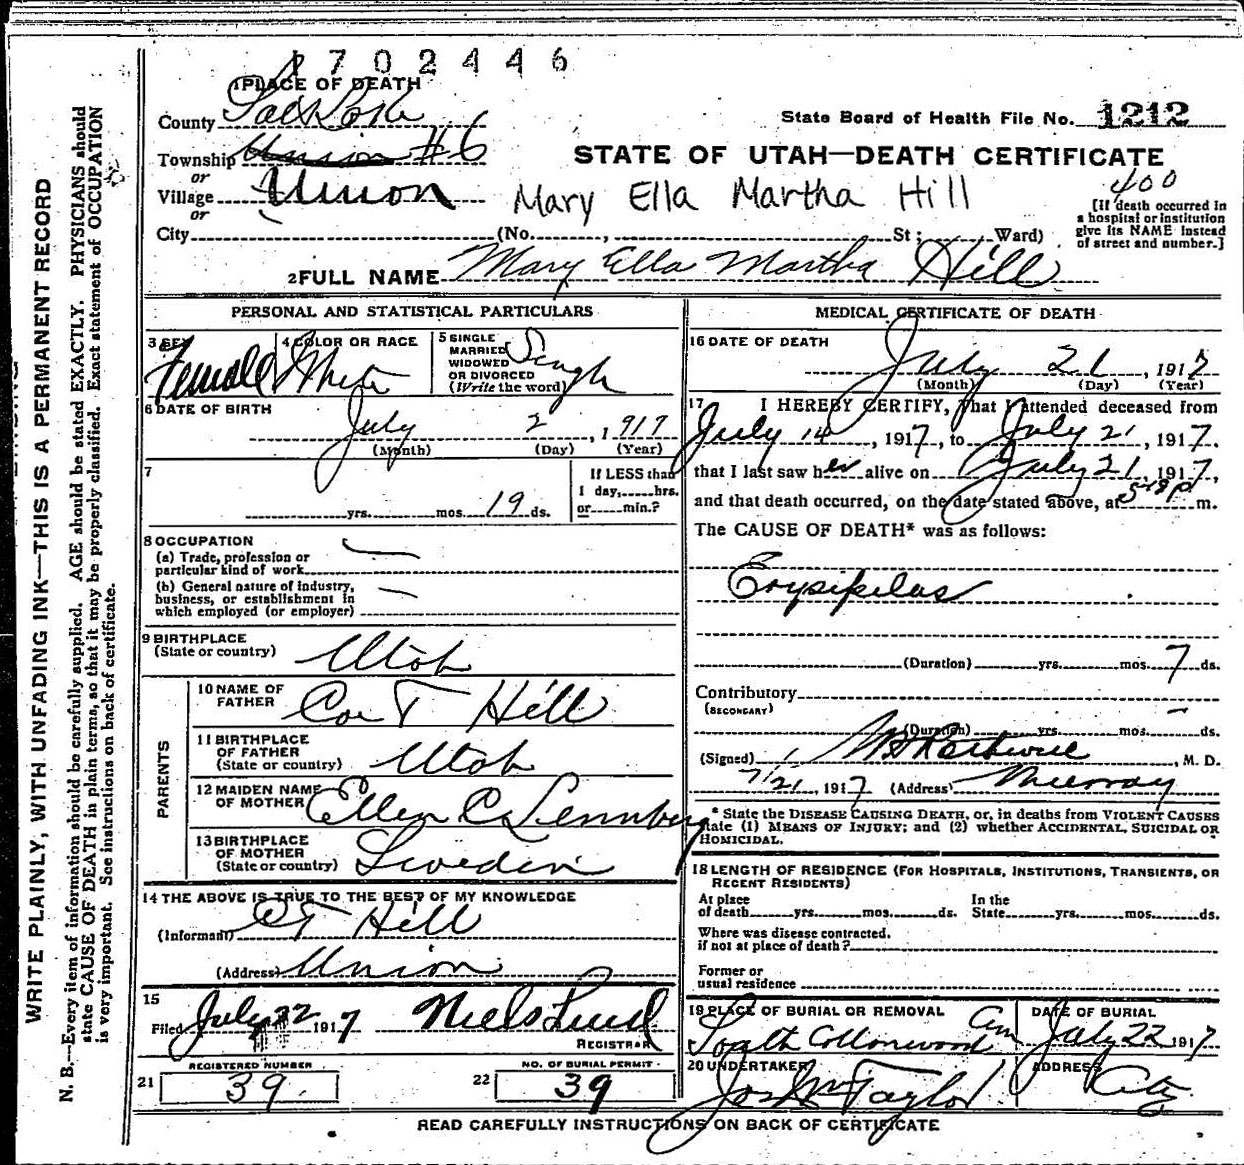 1702446
1 PLACE OF DEATH
County Salt Lake
State Board of Health File No. 1212
Township Union #6
or
STATE OF UTAH—DEATH CERTIFICATE
Village Union
or
Mary Ella Martha Hill
400
[If death occurred in a hospital or institution give its NAME instead of street and number.]
City (No. , St; Ward)
2 FULL NAME Mary Ella Martha Hill
PERSONAL AND STATISTICAL PARTICULARS
3 SEX Female
4 COLOR OR RACE White
5 SINGLE MARRIED WIDOWED OR DIVORCED (Write the word) Single
6 DATE OF BIRTH
July 2, 1917
(Month) (Day) (Year)
7
yrs. mos. 19 ds.
If LESS than 1 day, hrs. or min.?
8 OCCUPATION
(a) Trade, profession or
particular kind of work —
(b) General nature of industry,
business, or establishment in
which employed (or employer) —
9 BIRTHPLACE
(State or country) Utah
PARENTS
10 NAME OF
FATHER T Hill
11 BIRTHPLACE
OF FATHER
(State or country) Utah
12 MAIDEN NAME
OF MOTHER Ellen C Lennberg
13 BIRTHPLACE
OF MOTHER
(State or country) Sweden
14 THE ABOVE IS TRUE TO THE BEST OF MY KNOWLEDGE
(Informant) T Hill
(Address) Union
15
Filed July 22 1917 Niels Lind
REGISTRAR
REGISTERED NUMBER
21 39
NO. OF BURIAL PERMIT
22 39
MEDICAL CERTIFICATE OF DEATH
16 DATE OF DEATH
July 21, 1917
(Month) (Day) (Year)
17 I HEREBY CERTIFY, That I attended deceased from
July 14, 1917, to July 21, 1917.
that I last saw her alive on July 21, 1917,
and that death occurred, on the date stated above, at m.
The CAUSE OF DEATH* was as follows:
Erysipelas
(Duration) yrs. mos. 7 ds.
Contributory
(SECONDARY)
(Duration) yrs. mos. — ds.
(Signed) , M. D.
7/21, 1917 (Address) Murray
* State the DISEASE CAUSING DEATH, or, in deaths from VIOLENT CAUSES
state (1) MEANS OF INJURY; and (2) whether ACCIDENTAL, SUICIDAL OR
HOMICIDAL.
18 LENGTH OF RESIDENCE (FOR HOSPITALS, INSTITUTIONS, TRANSIENTS, OR
RECENT RESIDENTS)
At place
of death yrs. mos. ds.
In the
State yrs. mos. ds.
Where was disease contracted.
if not at place of death?
Former or
usual residence
19 PLACE OF BURIAL OR REMOVAL
South Cottonwood Cem
DATE OF BURIAL
July 22 1917
20 UNDERTAKER
Jos Wm Taylor
ADDRESS
City
READ CAREFULLY INSTRUCTIONS ON BACK OF CERTIFICATE
WRITE PLAINLY, WITH UNFADING INK—THIS IS A PERMANENT RECORD
N. B.—Every item of information should be carefully supplied. AGE should be stated EXACTLY. PHYSICIANS should
state CAUSE OF DEATH in plain terms, so that it may be properly classified. Exact statement of OCCUPATION
is very important. See instructions on back of certificate.